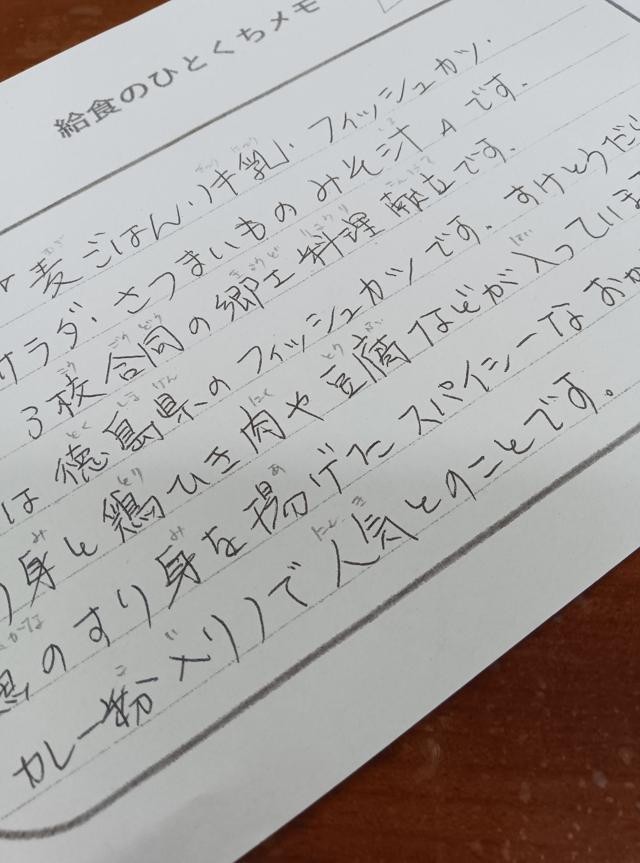 給食のひとくちメモ
麦ごはん、牛乳、フィッシュカツ、
サラダ、さつまいものみそ汁 です。
3校合同の郷土料理献立です。
は徳島県のフィッシュカツです。すけとうだら
り身と鶏ひき肉や豆腐などが入っていま
のすり身を揚げたスパイシーなおか
カレー粉入りで人気とのことです。